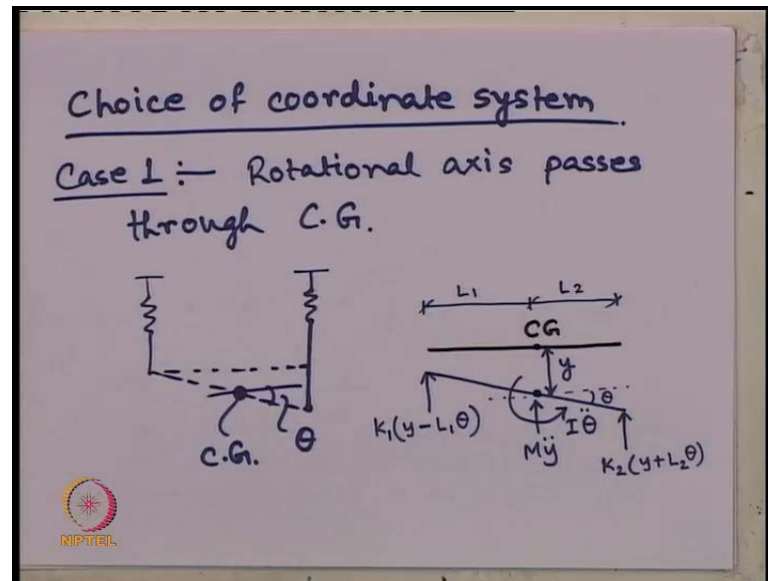 Choice of coordinate system
Case 1 :- Rotational axis passes
through C.G.
L₁ L₂
CG
y
θ
K₁(y-L₁θ)
Iÿ